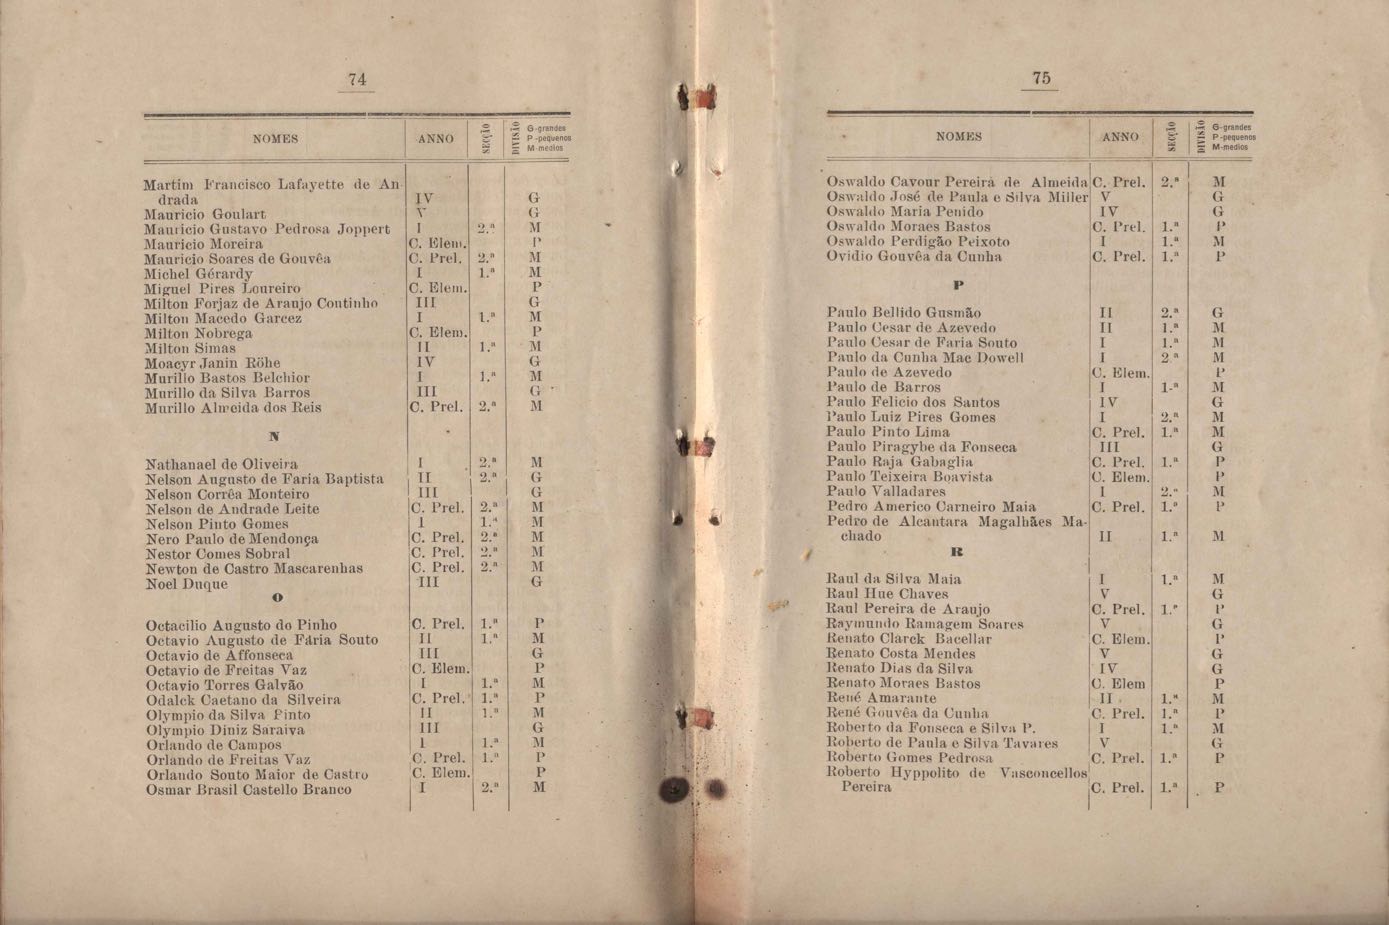 74
NOMES ANNO SECÇÃO DIVISÃO G-grandes
P-pequenos
M-medios
Martim Francisco Lafayette de An-
drada IV G
Mauricio Goulart V G
Mauricio Gustavo Pedrosa Joppert I 2.ª M
Mauricio Moreira C. Elem. P
Mauricio Soares de Gouvêa C. Prel. 2.ª M
Michel Gérardy I 1.ª M
Miguel Pires Loureiro C. Elem. P
Milton Forjaz de Araujo Coutinho III G
Milton Macedo Garcez I 1.ª M
Milton Nobrega C. Elem. P
Milton Simas II 1.ª M
Moacyr Janin Röhe IV G
Murillo Bastos Belchior I 1.ª M
Murillo da Silva Barros III G
Murillo Almeida dos Reis C. Prel. 2.ª M
N
Nathanael de Oliveira I 2.ª M
Nelson Augusto de Faria Baptista II 2.ª G
Nelson Corrêa Monteiro III G
Nelson de Andrade Leite C. Prel. 2.ª M
Nelson Pinto Gomes I 1.ª M
Nero Paulo de Mendonça C. Prel. 2.ª M
Nestor Comes Sobral C. Prel. 2.ª M
Newton de Castro Mascarenhas C. Prel. 2.ª M
Noel Duque III G
O
Octacilio Augusto do Pinho C. Prel. 1.ª P
Octavio Augusto de Faria Souto II 1.ª M
Octavio de Affonseca III G
Octavio de Freitas Vaz C. Elem. P
Octavio Torres Galvão I 1.ª M
Odalck Caetano da Silveira C. Prel. 1.ª P
Olympio da Silva Pinto II 1.ª M
Olympio Diniz Saraiva III G
Orlando de Campos I 1.ª M
Orlando de Freitas Vaz C. Prel. 1.ª P
Orlando Souto Maior de Castro C. Elem. P
Osmar Brasil Castello Branco I 2.ª M
75
NOMES ANNO SECÇÃO DIVISÃO G-grandes
P-pequenos
M-medios
Oswaldo Cavour Pereira de Almeida C. Prel. 2.ª M
Oswaldo José de Paula e Silva Miller V G
Oswaldo Maria Penido IV G
Oswaldo Moraes Bastos C. Prel. 1.ª P
Oswaldo Perdigão Peixoto I 1.ª M
Ovidio Gouvêa da Cunha C. Prel. 1.ª P
P
Paulo Bellido Gusmão II 2.ª G
Paulo Cesar de Azevedo II 1.ª M
Paulo Cesar de Faria Souto I 1.ª M
Paulo da Cunha Mac Dowell I 2.ª M
Paulo de Azevedo C. Elem. P
Paulo de Barros I 1.ª M
Paulo Felicio dos Santos IV G
Paulo Luiz Pires Gomes I 2.ª M
Paulo Pinto Lima C. Prel. 1.ª M
Paulo Piragybe da Fonseca III G
Paulo Raja Gabaglia C. Prel. 1.ª P
Paulo Teixeira Boavista C. Elem. P
Paulo Valladares I 2.ª M
Pedro Americo Carneiro Maia C. Prel. 1.ª P
Pedro de Alcantara Magalhães Ma-
chado II 1.ª M
R
Raul da Silva Maia I 1.ª M
Raul Hue Chaves V G
Raul Pereira de Araujo C. Prel. 1.ª P
Raymundo Ramagem Soares V G
Renato Clarck Bacellar C. Elem. P
Renato Costa Mendes V G
Renato Dias da Silva IV G
Renato Moraes Bastos C. Elem P
René Amarante II 1.ª M
René Gouvêa da Cunha C. Prel. 1.ª P
Roberto da Fonseca e Silva P. I 1.ª M
Roberto de Paula e Silva Tavares V G
Roberto Gomes Pedrosa C. Prel. 1.ª P
Roberto Hyppolito de Vasconcellos
Pereira C. Prel. 1.ª P